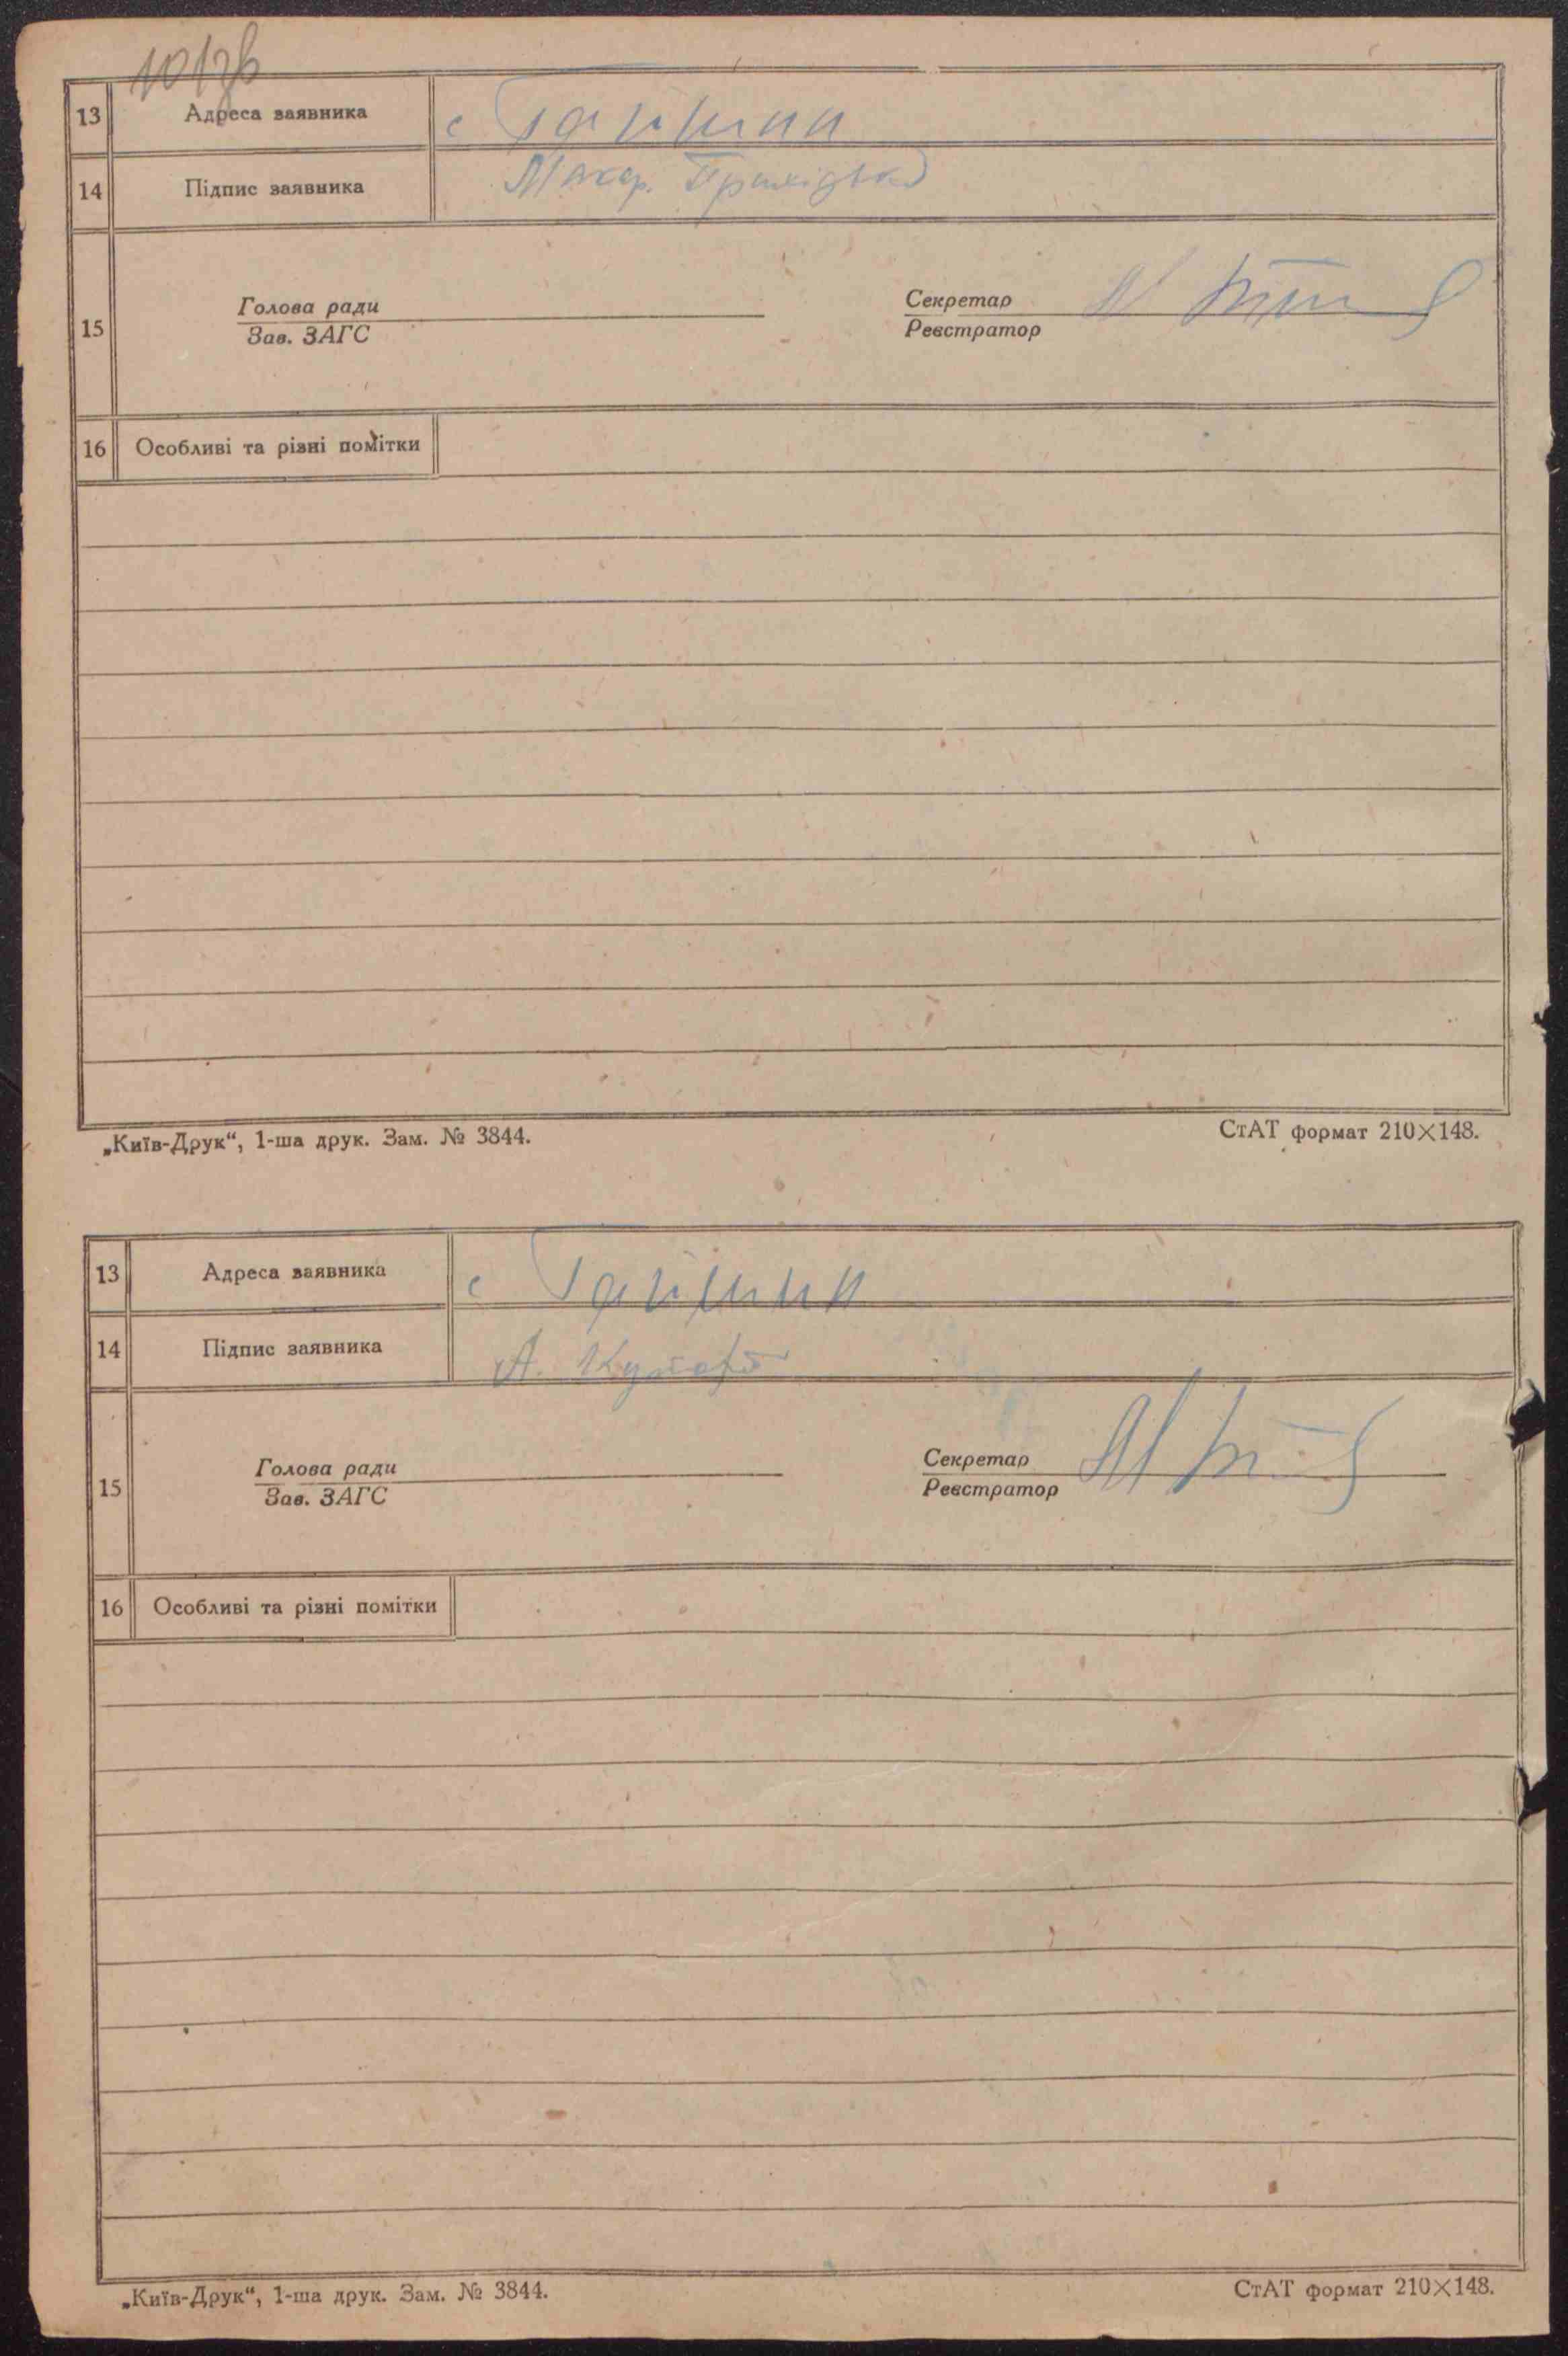 101зв
13 Адреса заявника с Гайшин
14 Підпис заявника Макар.
Голова ради Секретар
15
Зав. ЗАГС Реєстратор
16 Особливі та різні помітки
„Київ-Друк“, 1-ша друк. Зам. № 3844. СтАТ формат 210×148.
13 Адреса заявника с Гайшин
14 Підпис заявника А.
Голова ради Секретар
15
Зав. ЗАГС Реєстратор
16 Особливі та різні помітки
„Київ-Друк“, 1-ша друк. Зам. № 3844. СтАТ формат 210×148.